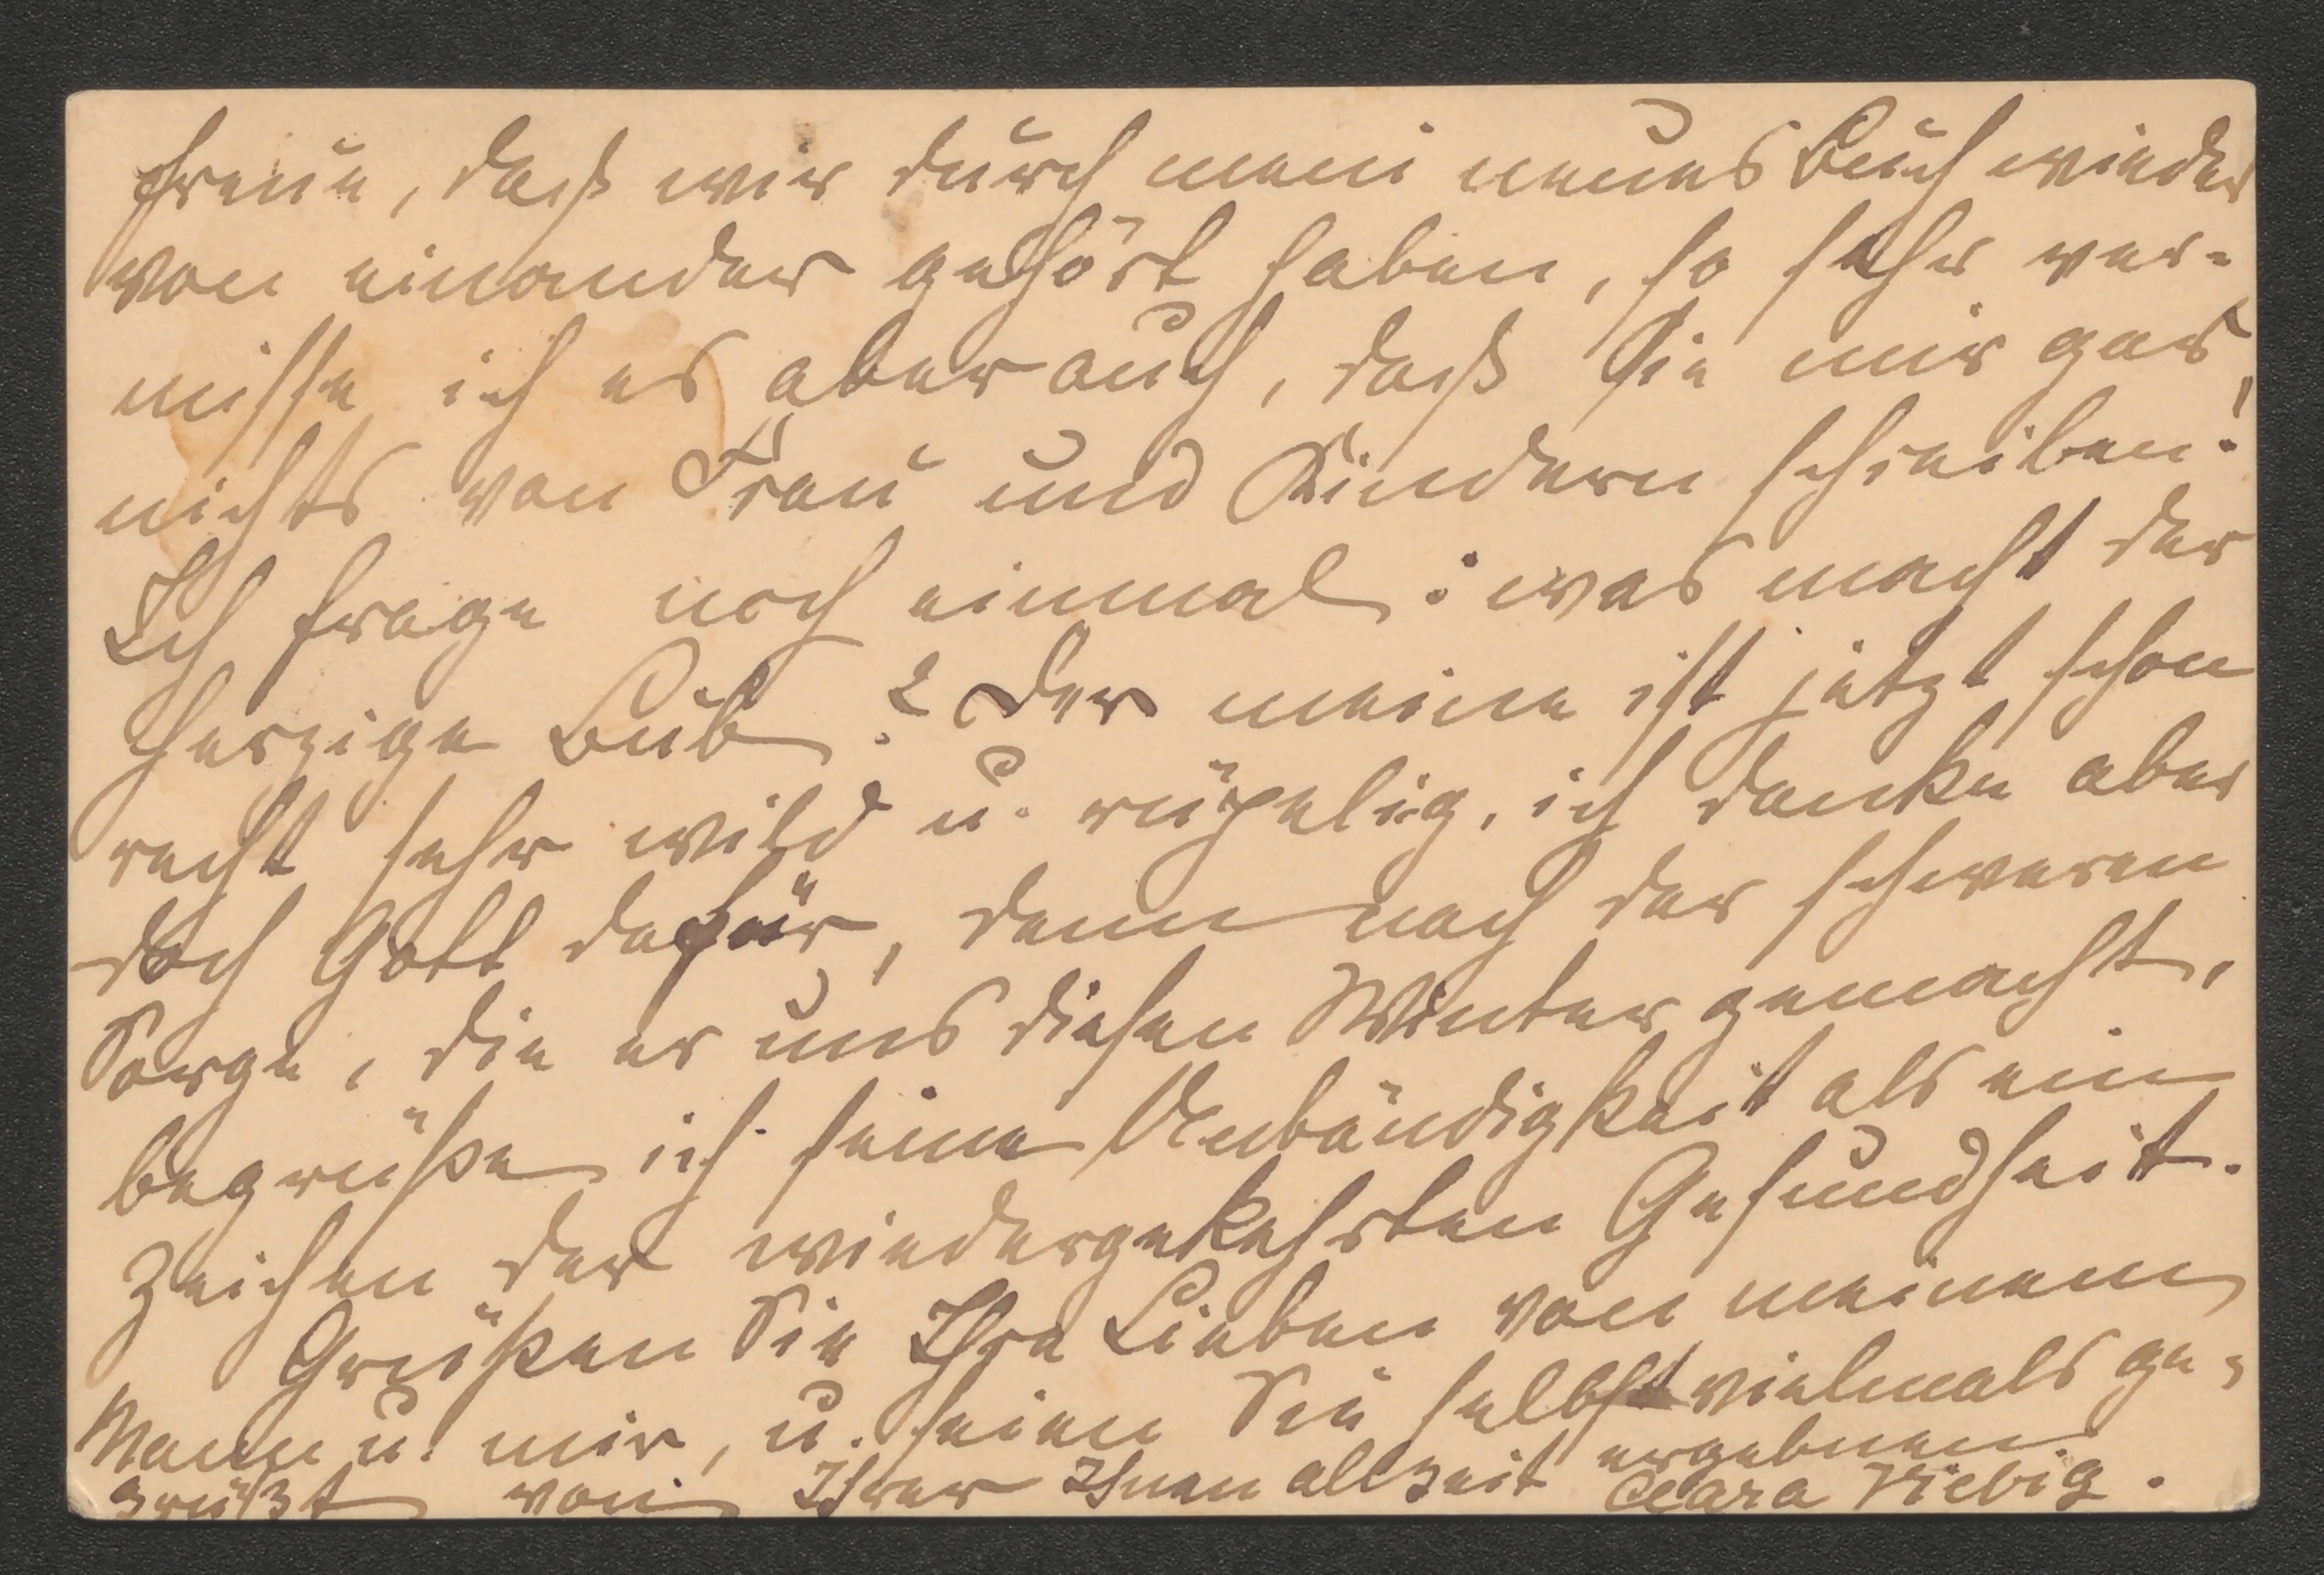 freue, daß wir durch mein neues Buch wieder
von einander gehört haben, so sehr ver-
misse ich es aber auch, daß Sie mir gar
nichts von Frau und Kindern schreiben!
Ich frage noch einmal: was macht der
herzige Bub? Der meine ist jetzt schon
recht sehr wild u. rüpelig, ich danke aber
doch Gott dafür, denn nach der schweren
Sorge, die er uns diesen Winter gemacht,
begrüße ich seine Unbändigkeit als ein
Zeichen der wiedergekehrten Gesundheit.
Grüßen Sie Ihre Lieben von meinem
Mann u. mir, u. seien Sie selbst vielmals ge-
grüßt von Ihrer Ihnen allzeit ergebnen
Clara Viebig.